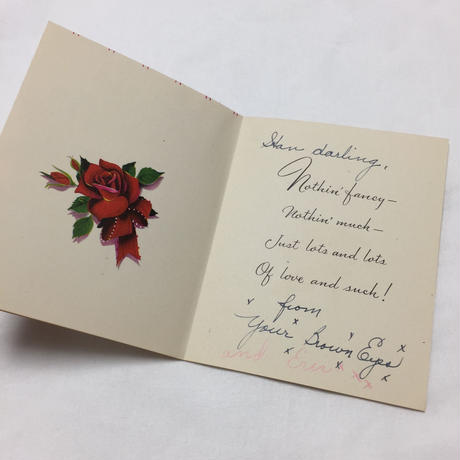 Stan darling,
Nothin' fancy—
Nothin' much—
Just lots and lots
Of love and such!
from
x x x x
Your Brown Eyes
and Erin x x x